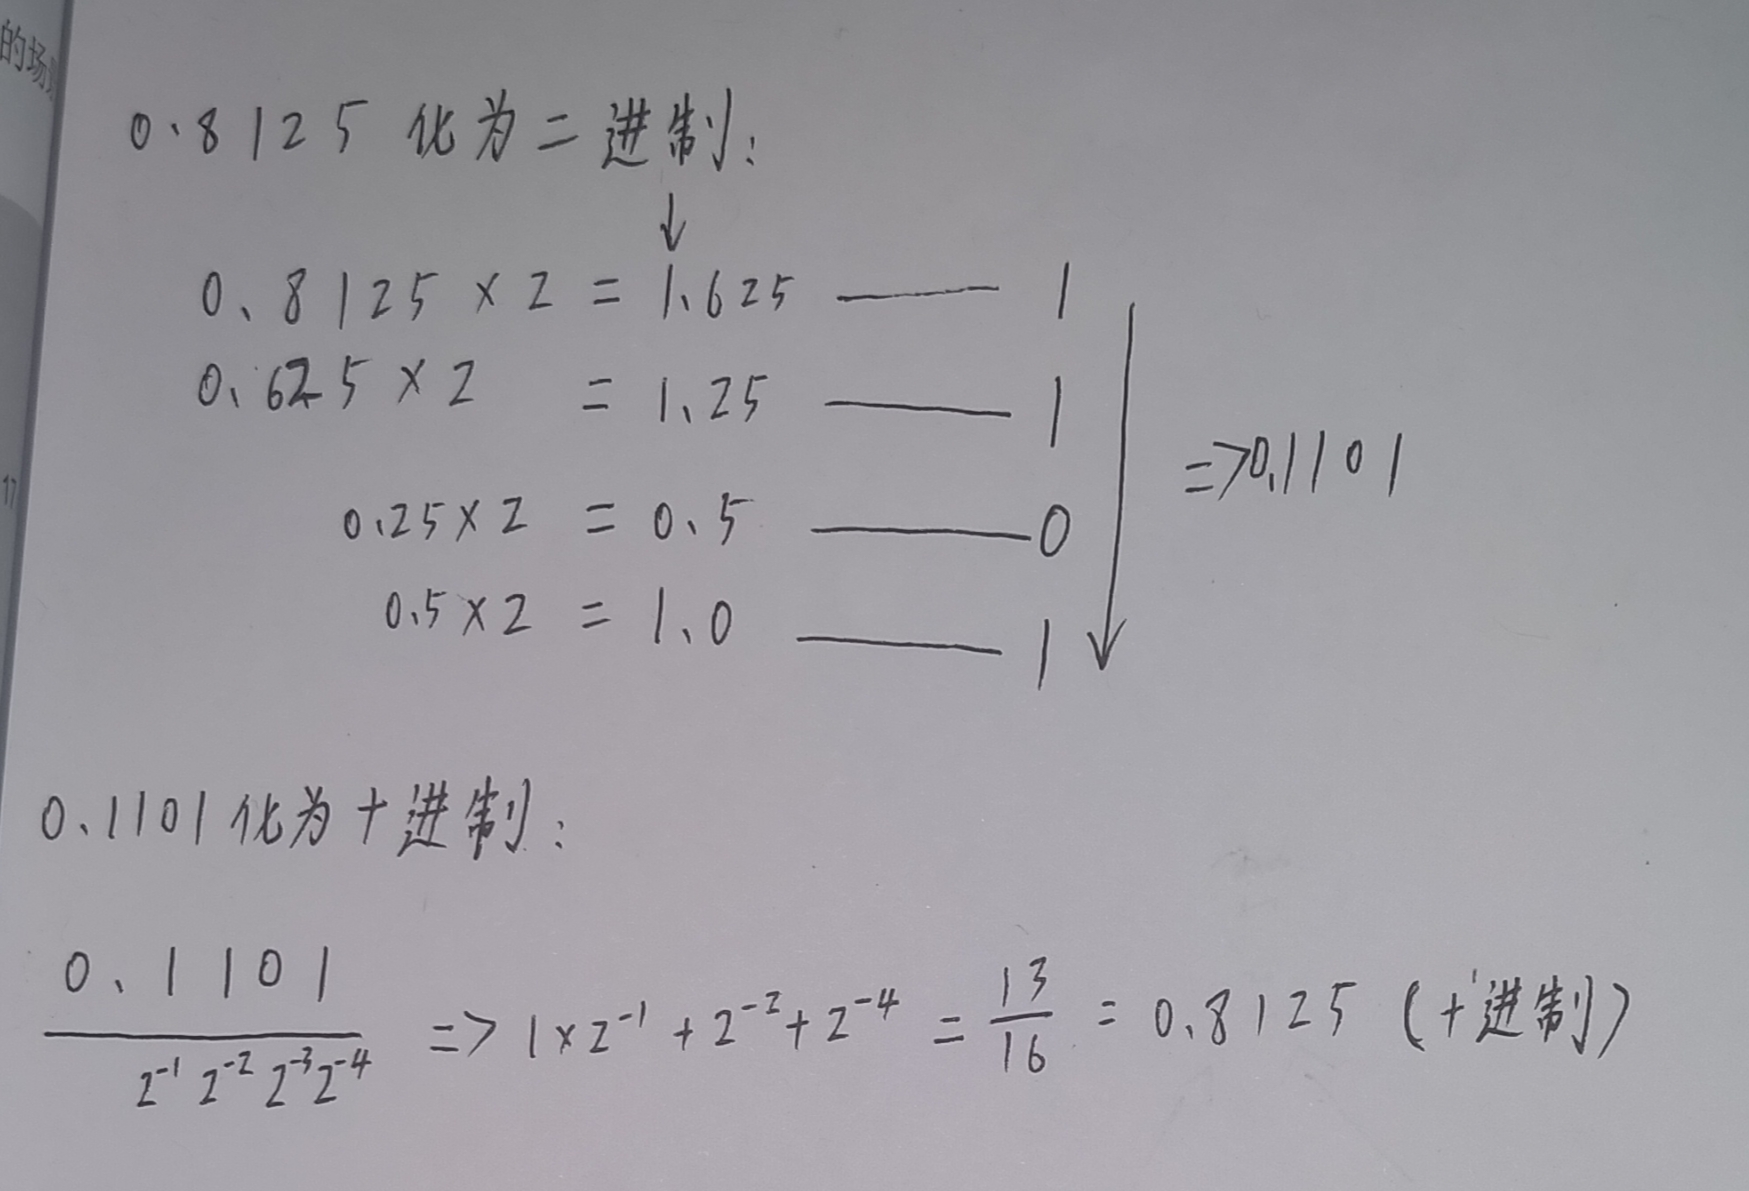 的场
17
0.8125 化为二进制:
↓
0.8125 × 2 = 1.625 —— 1
0.625 × 2 = 1.25 —— 1
0.25 × 2 = 0.5 —— 0
0.5 × 2 = 1.0 —— 1
=> 0.1101
0.1101 化为十进制:
0.1101
2⁻¹ 2⁻² 2⁻³ 2⁻⁴
=> 1 × 2⁻¹ + 2⁻² + 2⁻⁴ = 13/16 = 0.8125 (十进制)